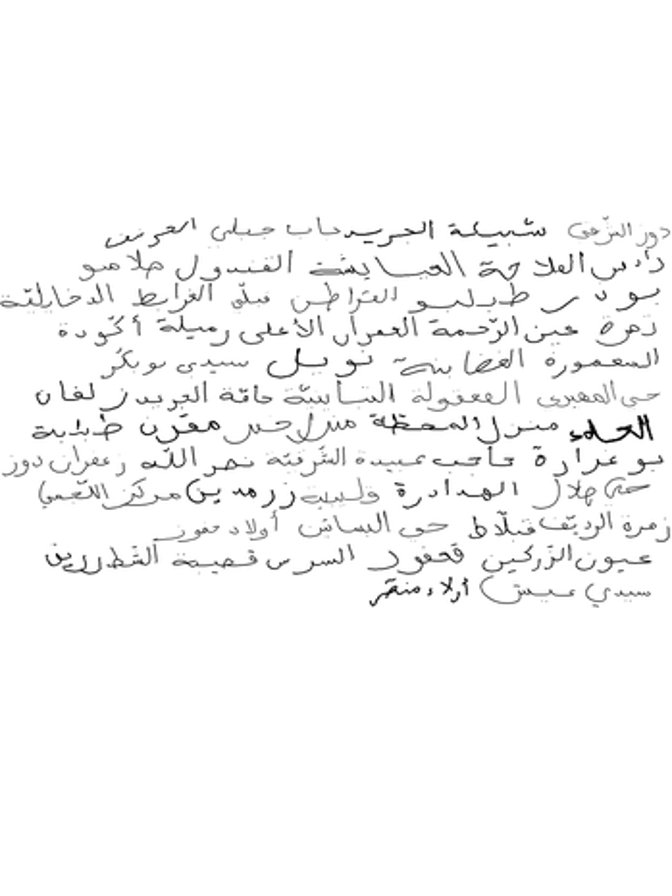 دوز الشرقي شبيكة الجريد باب جبلي
رأس العلا حمة العبايشة الفندول
بودر طبلبو القراطن قبلي الغرابط الدخايلية
زمرة عين الرّحمة العمران الأعلى رميلة أكّودة
المعمورة الغضابنة نويل سيدي بوبكر
حي المهيري الفعقولة السّاسيّة حامّة الجريد
منزل المحطّة منزل حسن مقرن طبلبة
بو غرارة حاجب عبيدة الشّرفيّة نصر اللّه زعفران دوز
حي هلال الهدادرة وليبية زرمدين مركز اللّجمي
زمرة الرديّف قبلّاط حي البساتين أولاد حفوز
عيون الزّركين قحفور السرس قصيبة الشطّ
سيدي عيش أولاد منصر